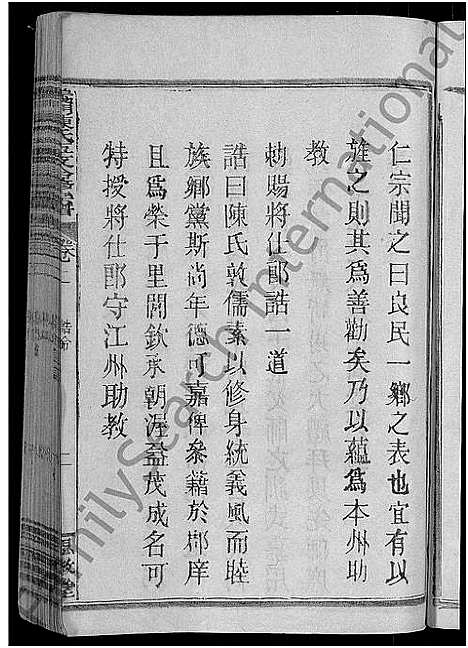 仁宗聞之曰良民一鄉之表也宜有以
旌之則其為善勸矣乃以蘊為本州助
教
勅賜將仕郎誥一道
誥曰陳氏敦儒素以修身統義風而睦
族鄉黨斯尚年德可嘉俾叅藉於郡庠
且為榮于里閈欽承朝渥益茂成名可
特授將仕郎守江州助教
卷
FamilySearch International